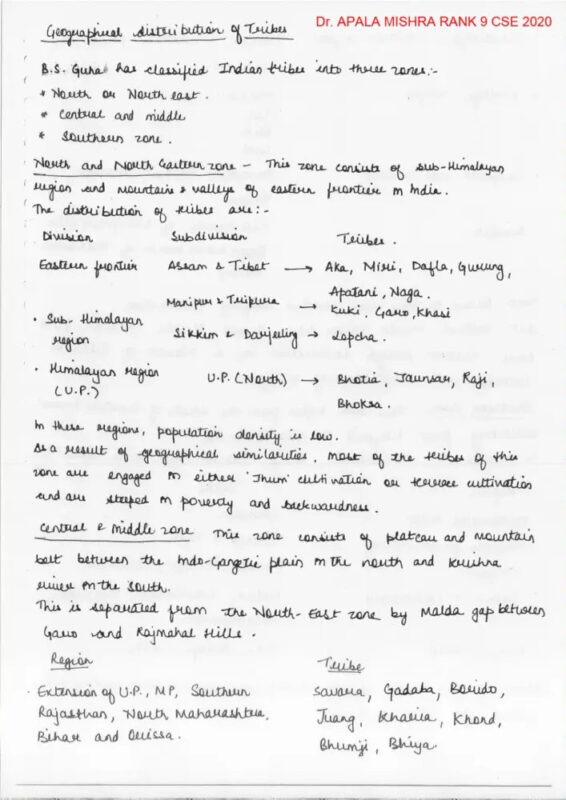 Dr. APALA MISHRA RANK 9 CSE 2020
Geographical distribution of Tribes
B.S. Guha has classified Indian tribes into three zones:-
* North or North east.
* Central and middle
* Southern zone.
North and North Eastern zone - This zone consists of sub-Himalayan
region and mountains & valleys of eastern frontier in India.
The distribution of tribes are:-
Division Subdivision Tribes.
Eastern frontier Assam & Tibet → Aka, Misi, Dafla, Gurung,
Apatani, Naga.
Manipur & Tripura → Kuki, Garo, Khasi
• Sub-Himalayan
region Sikkim & Darjeeling → Lepcha.
• Himalayan region
(U.P.) U.P. (North) → Bhotia, Jaunsar, Raji,
Bhoksa.
In these regions, population density is low.
As a result of geographical similarities, most of the tribes of this
zone are engaged in either Jhum cultivation or terrace cultivation
and are steeped in poverty and backwardness.
Central & middle zone This zone consists of plateau and mountain
belt between the Indo-Gangetic plain in the north and Krishna
river in the south.
This is separated from the North-East zone by Malda gap between
Garo and Rajmahal Hills.
Region Tribe
• Extension of U.P., MP, Southern
Rajasthan, North Maharashtra,
Bihar and Orissa.
Savara, Gadaba, Borido,
Juang, Kharia, Khond,
Bhumji, Bhiya.